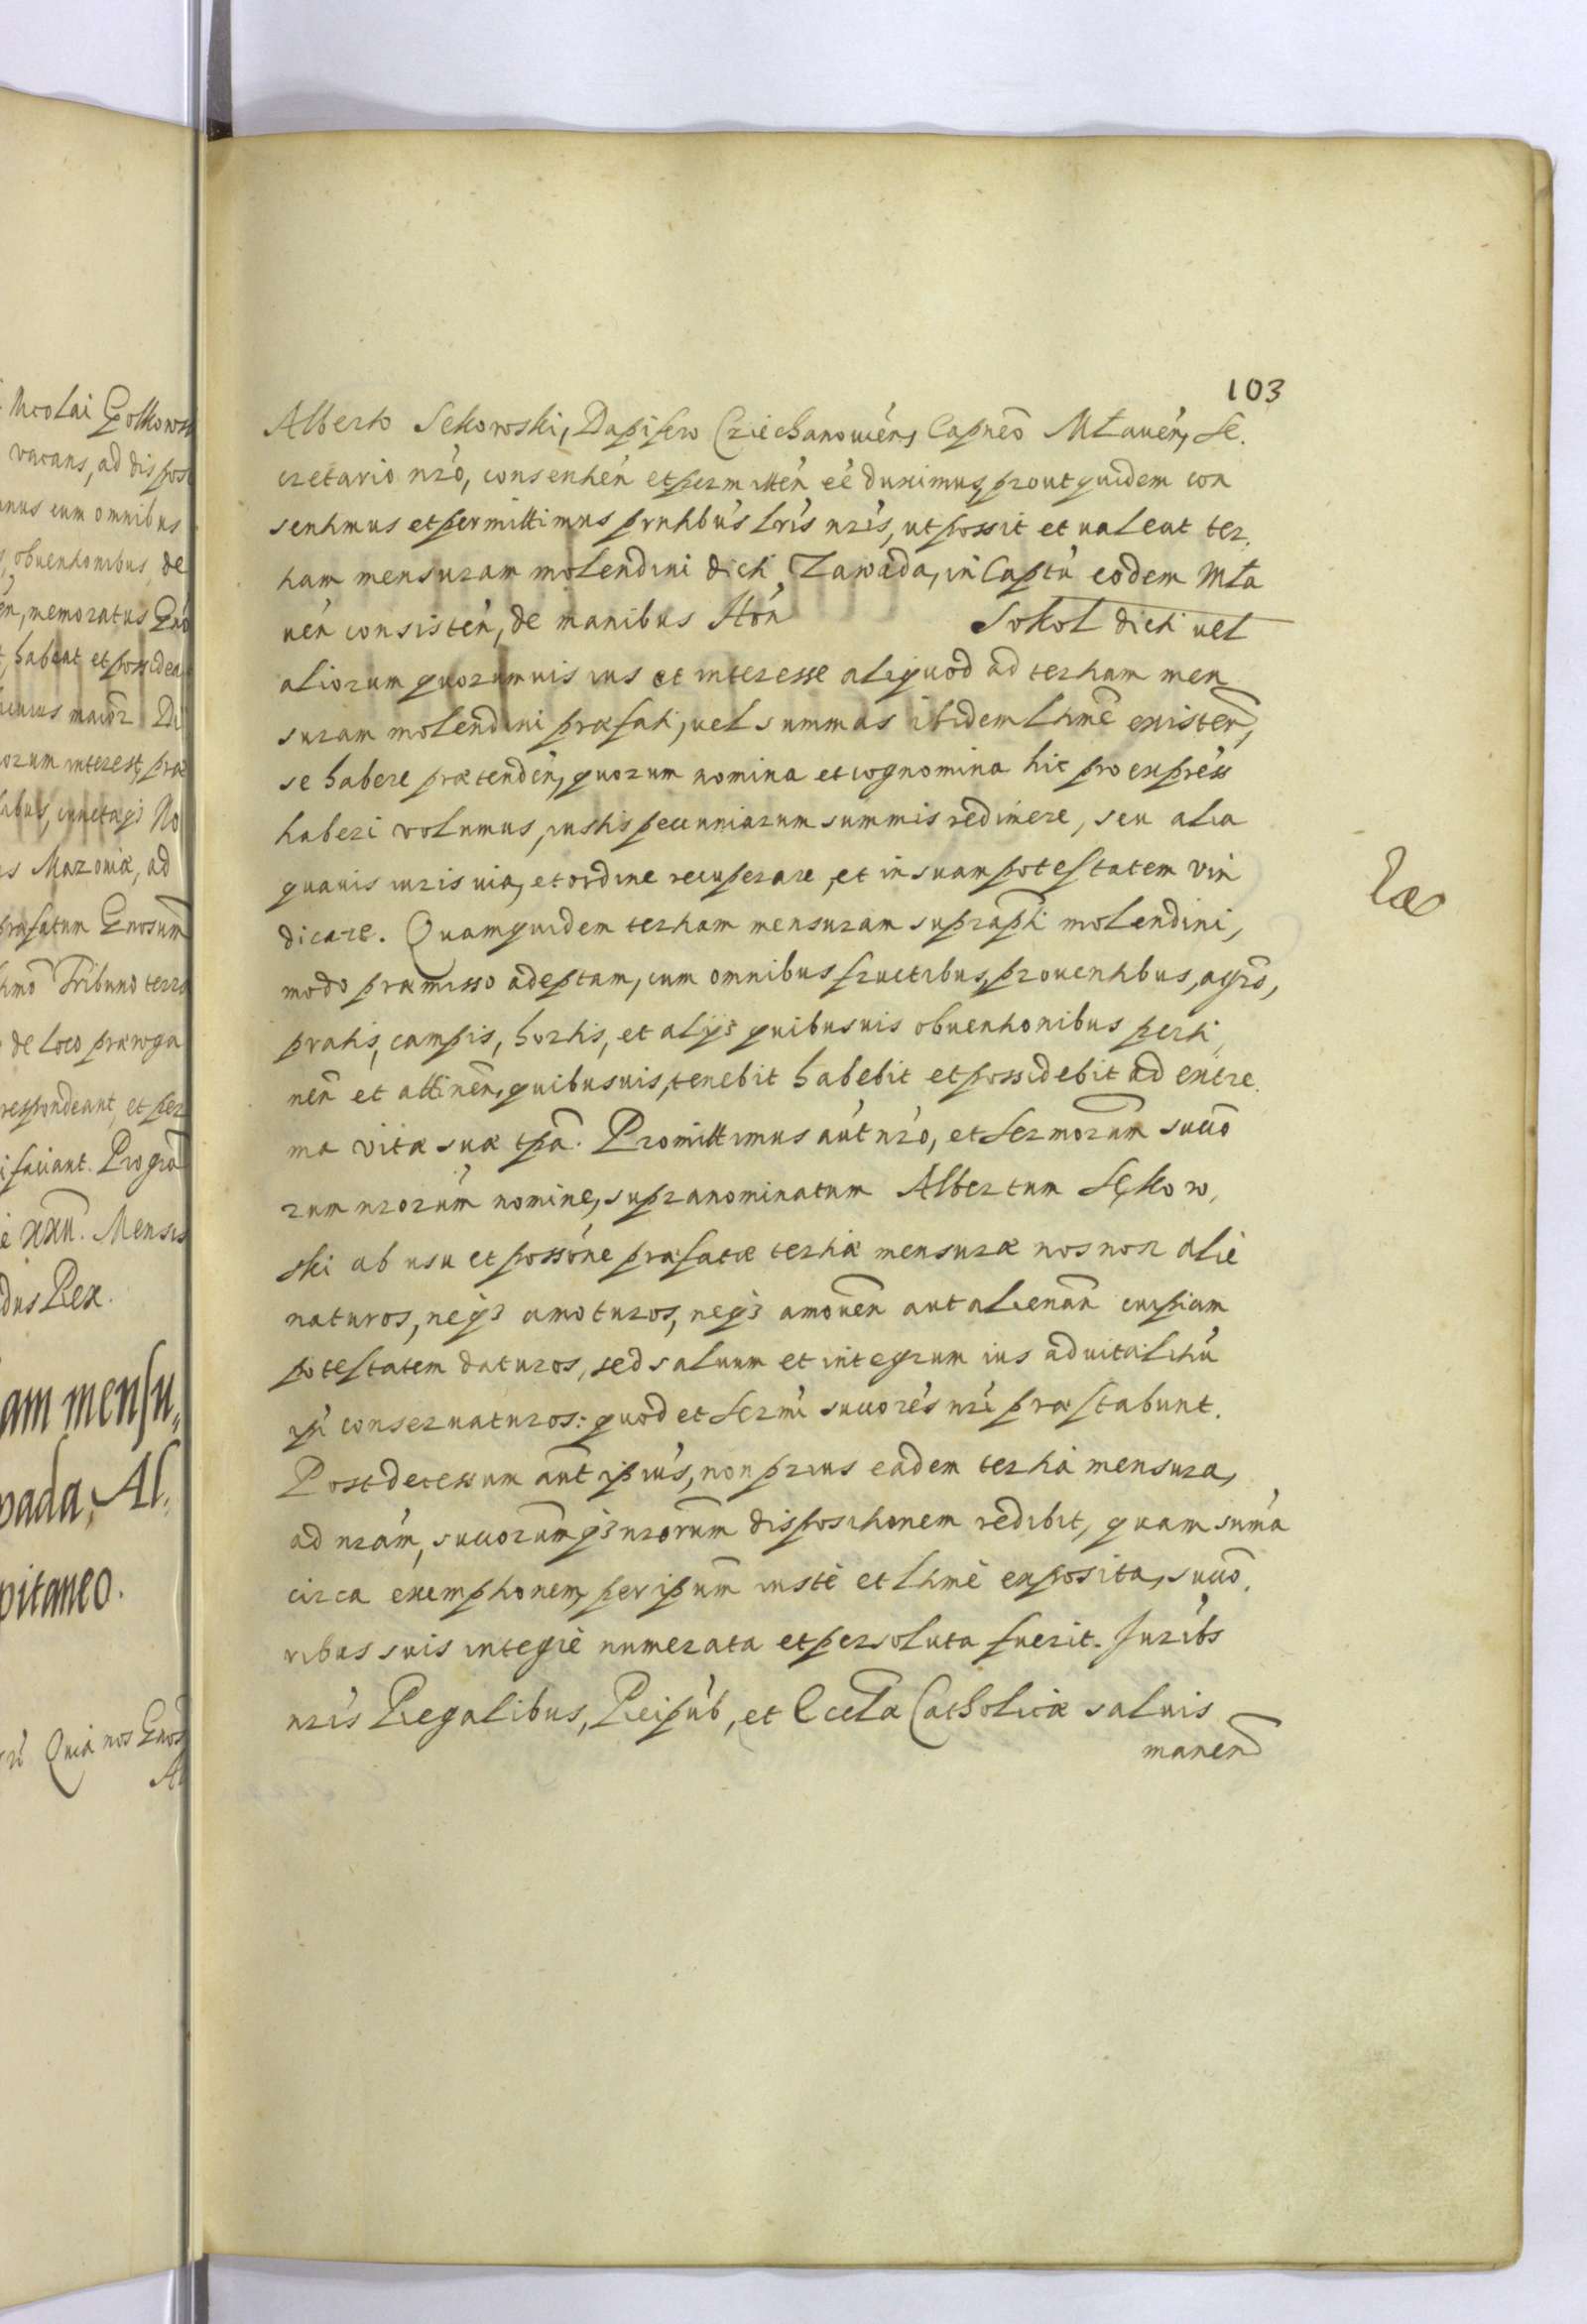 Nicolai Golkowsk
vacans, ad dispos
anus cum omnibus
obuentionibus de
en, memoratus Gno
habeat et possidea
maior Di
orum interest, præ
No
s Mazouiæ, ad
præfatum Gnosum
Tribuno terræ
de loco præroga
respondeant, et per
faciant. Pro
e XXII. Mensis
dus Rex.
am mensu„
wada, Al„
pitaneo.
Quia nos Gnos
Al
103
Alberto Sekowski, Dapifero Cziechanouień, Capneo Mławeń, Se„
cretario nro, consentień et permitteń eé duximus, prout quidem con
sentimus et permittimus pntibus lris nris, ut possit et ualeat ter„
tiam mensuram molendini dicti Zawada, in Captu eodem Mła
ueń consisteń, de manibus Hon Sokol dicti uel
aliorum quorumuis ius et interesse aliquod ad tertiam men
suram molendini præfati, uel summas ibidem ltime existen,
se habere prætenden, quorum nomina et cognomina hic pro express
haberi volumus, iustis pecuniarum summis redimere, seu alia
quauis iuris uia, et ordine recuperare, et in suam potestatem vin
dicare. Quamquidem tertiam mensuram supraphti molendini,
modo præmisso adeptam, cum omnibus fructibus, prouentibus, agro,
pratis, campis, hortis, et alijs quibusuis obuentionibus perti„
nen et attinen, quibusuis, tenebit habebit et possidebit ad extre„
ma vitæ suæ tpa. Promittimus aut nro, et Sermorum succo
rum nrorum nomine, supranominatum Albertum Sękow„
ski ab usu et possone præfatæ tertiæ mensuræ nos non alie
naturos, neq3 amoturos, neq3 amouen aut alienan cuipiam
potestatem daturos, sed saluum et integrum ius aduitalitiu
ipi conseruaturos: quod et Sermi succores nri præstabunt.
Post decessum aut ipius, non prius eadem tertia mensura,
ad nram, succorumq3 nrorum dispositionem redibit, quam suma
circa exemptionem, per ipum iuste et ltime exposita, succo„
ribus suis integre numerata et persoluta fuerit. Juribs
nris Regalibus, Reipub, et Eccla Catholicæ saluis
manen